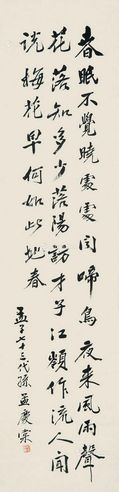 春眠不覺曉處處聞啼鳥夜來風雨聲
花落知多少洛陽訪才子江嶺作流人聞
說梅花早何如此地春
孟子七十三代孫孟慶棠